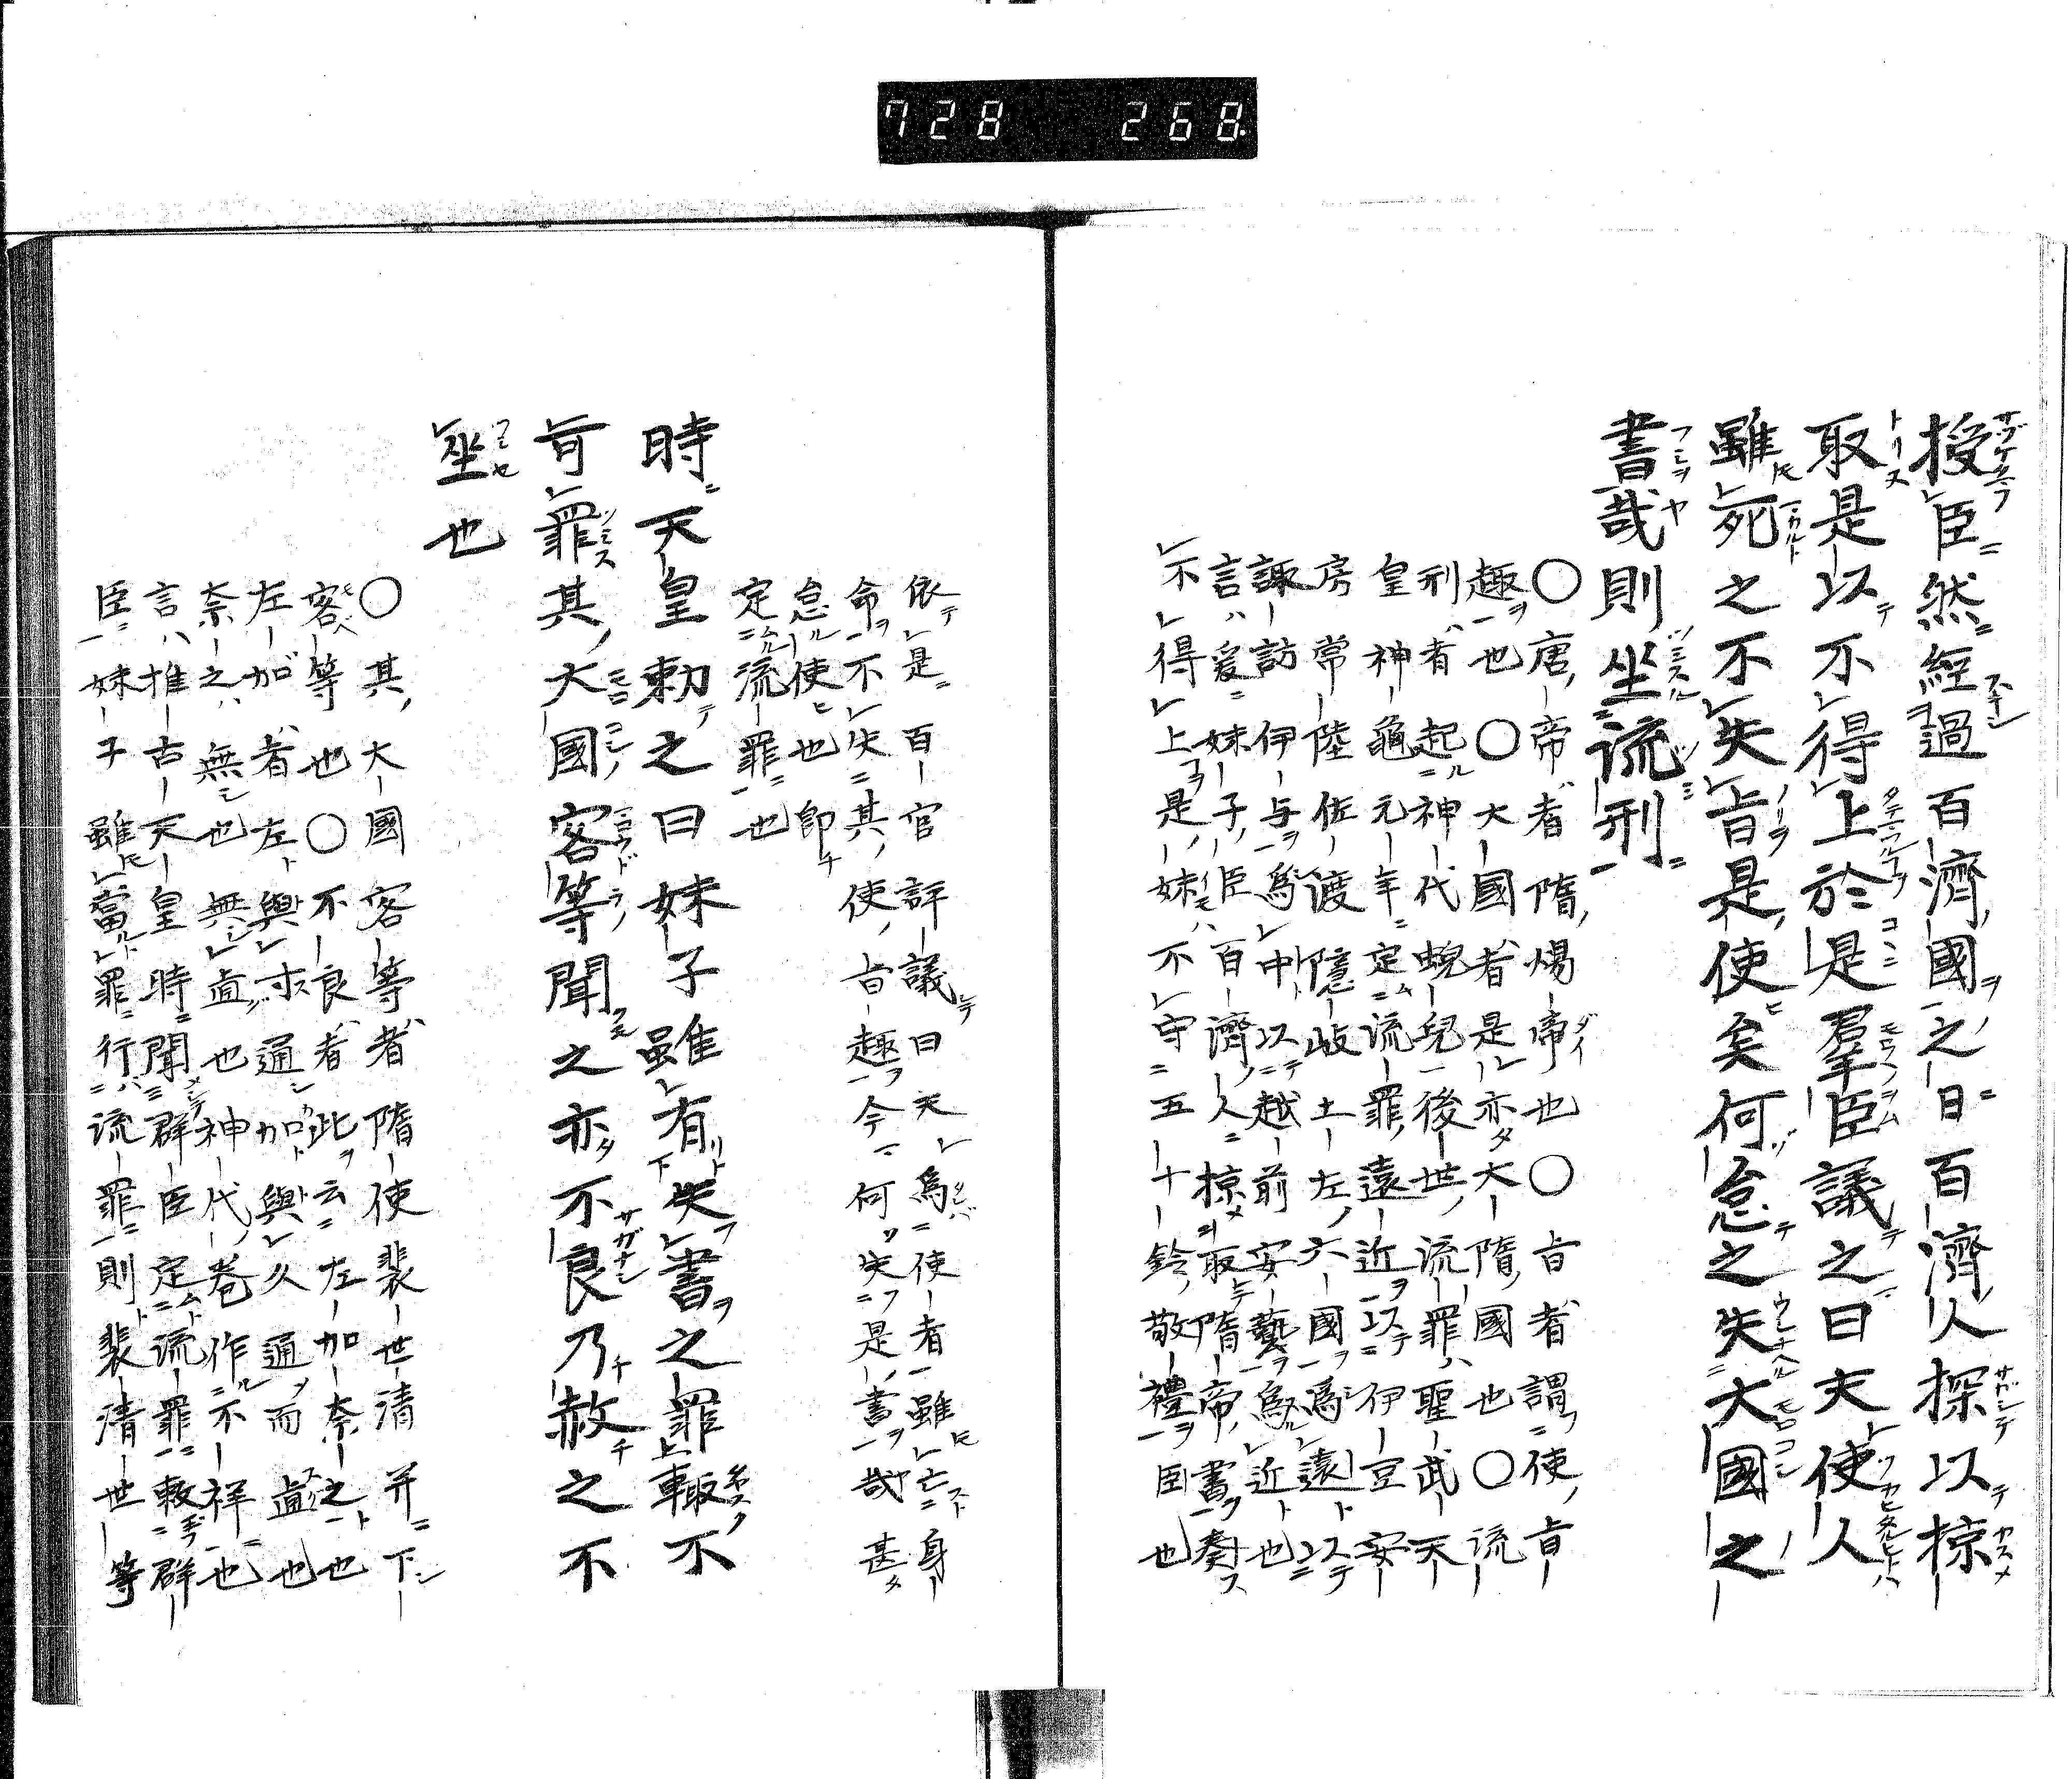 728 268
授臣然經過百濟國之日百濟人探以掠
取是以不得上於是羣臣議之曰夫使人
雖死之不失旨是使矣何怠之失大國之
書哉則坐流刑
○唐帝者隋煬帝也○旨者謂使旨
趣也○大國者是亦大隋國也○流
刑者起神代蛭兒後世流罪聖武天
皇神龜元年定流罪遠近以伊豆安
房常陸佐渡隱岐土左六國爲遠以
諏訪伊与爲中以越前安藝爲近也
言爰妹子臣百濟人掠取隋帝書奏
不得上是妹不守五十鈴敬禮因也
依是百官評議曰夫爲使者雖亡身
命不失其使旨趣今何失是書哉甚
怠使也即
定流罪也
時天皇勅之曰妹子雖有失書之罪輙不
可罪其大國客等聞之亦不良乃赦之不
坐也
○其大國客等者隋使裴世清并下
客等也○不良者此云左加奈之也
左加者左與求通加與久通而直也
奈之無也無直也神代卷作不祥也
言推古天皇時聞群臣定流罪敕群
臣妹子雖當罪行流罪則裴清世等